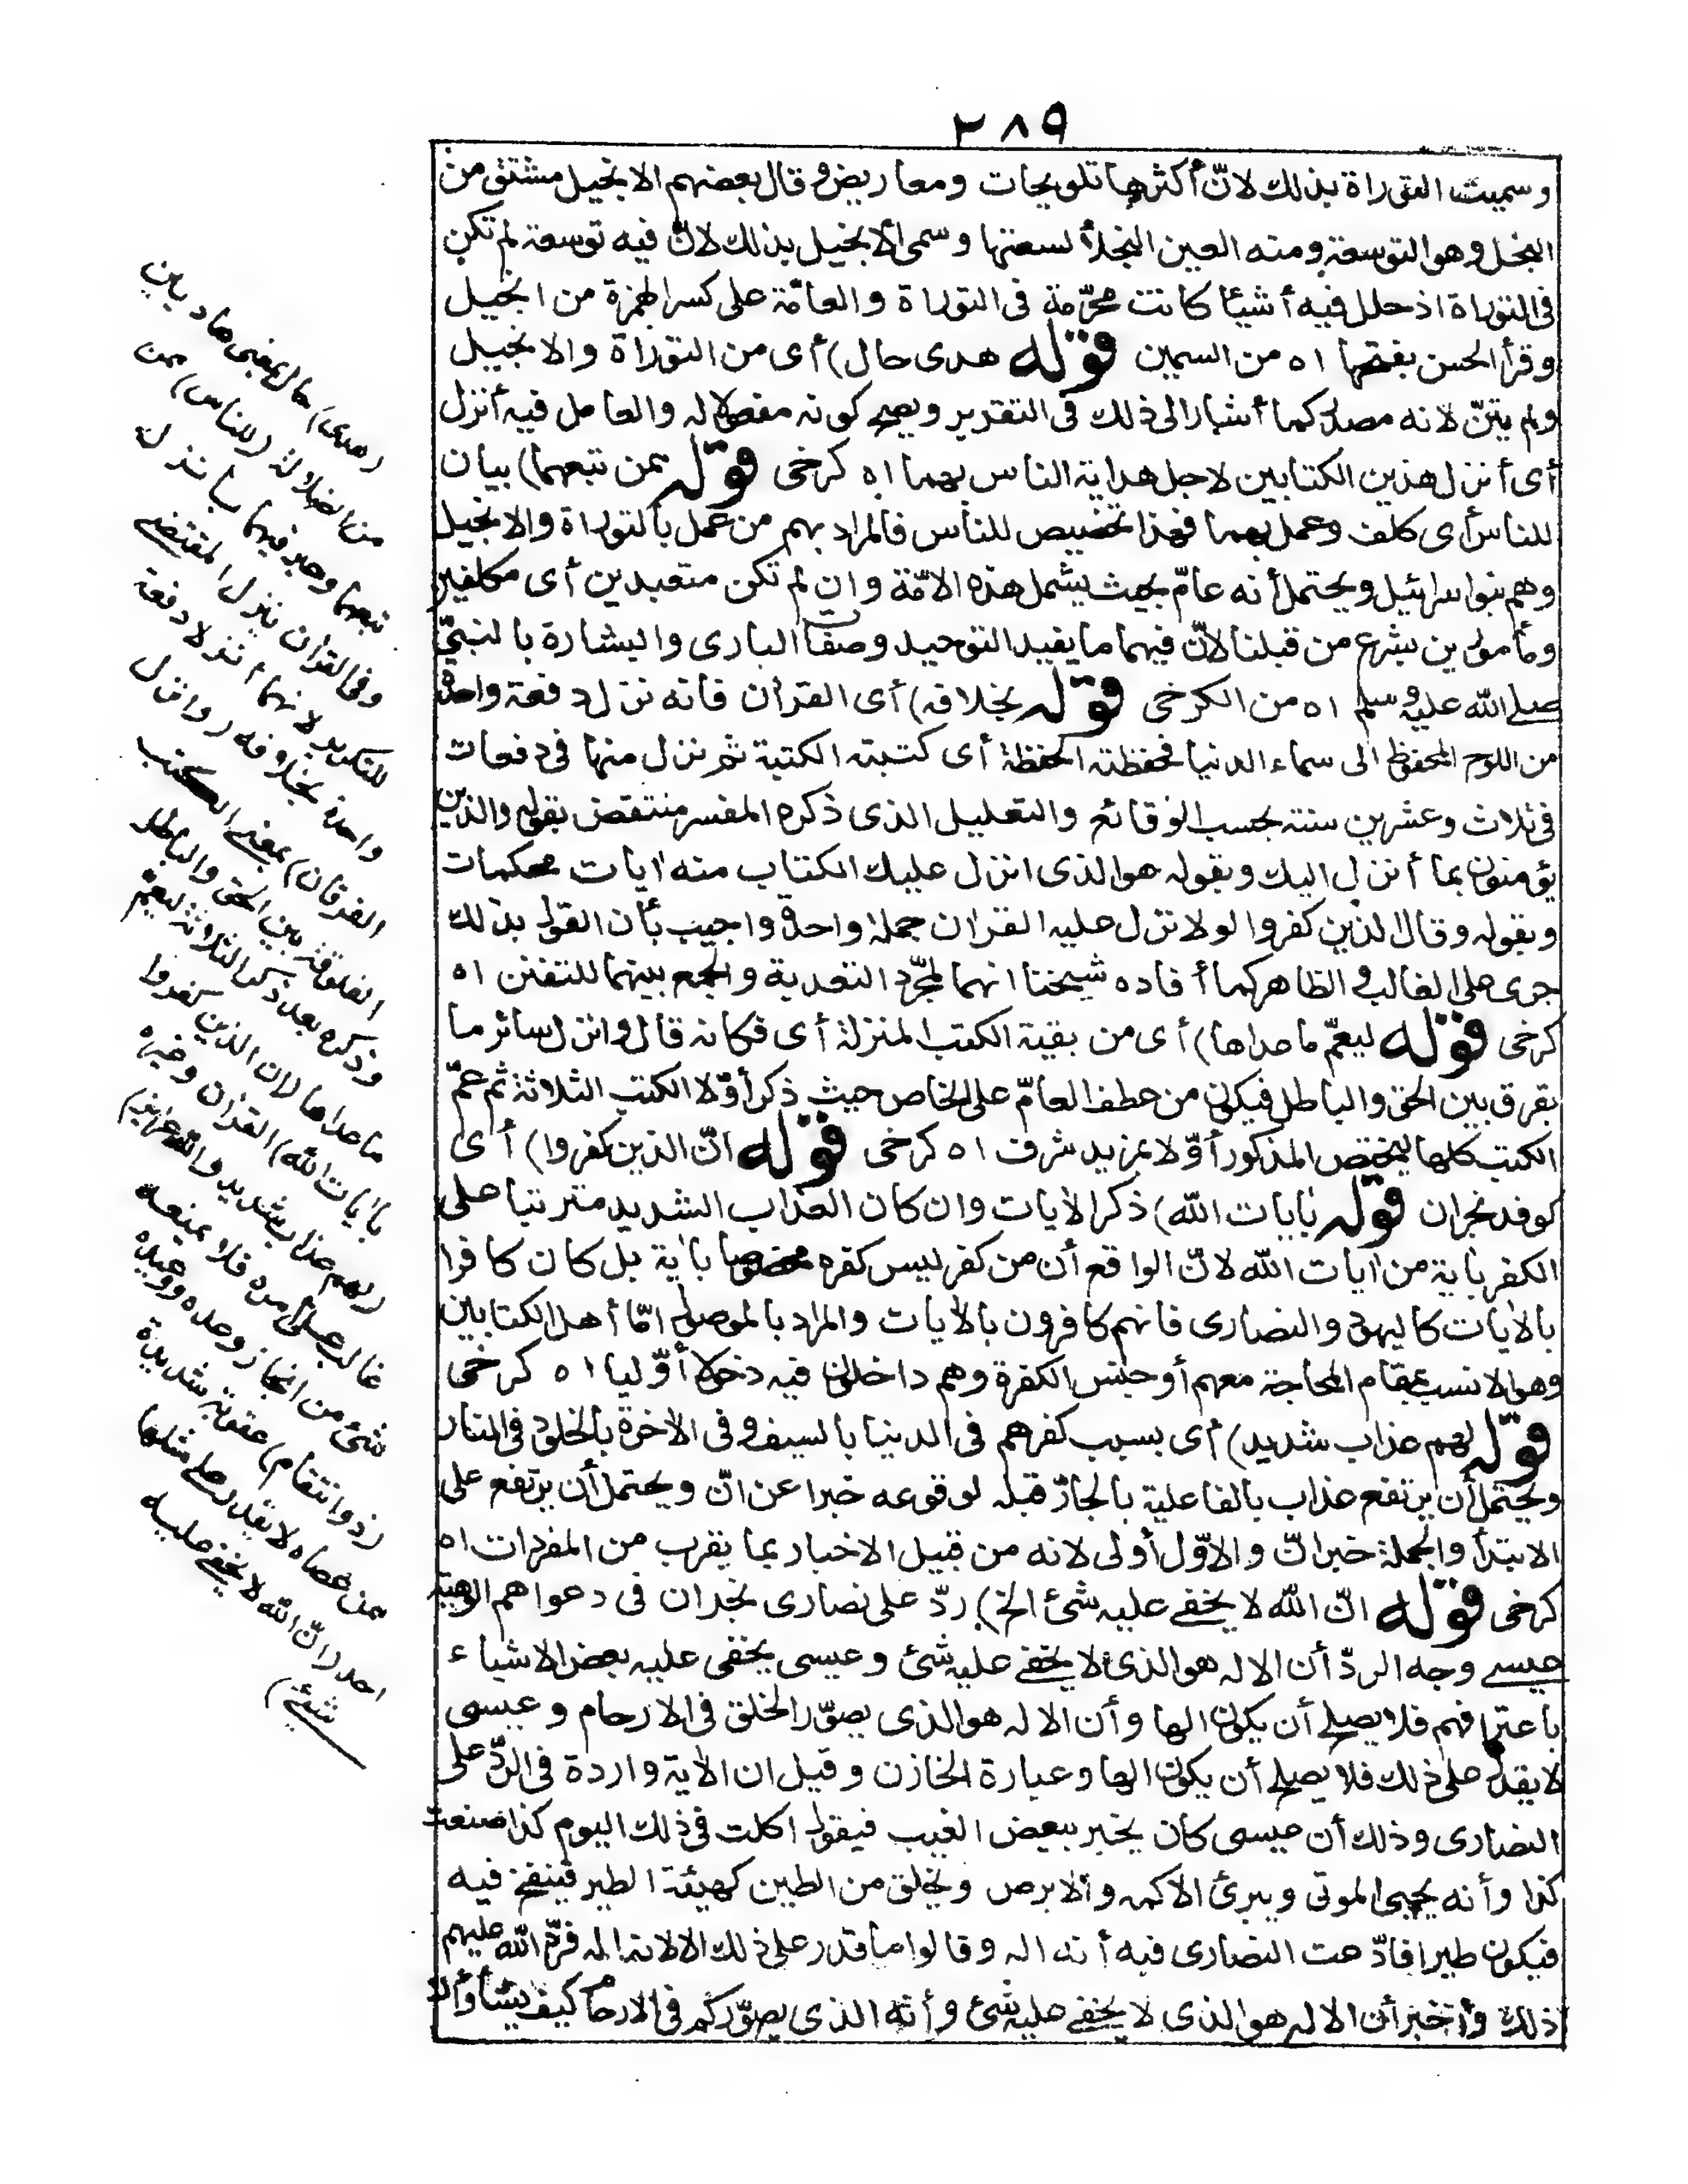 ٢٨٩
وسميت التوراة بذلك لانّ أكثرها تلويحات ومعاريض وقال بعضهم الانجيل مشتق من
النجل وهو التوسعة ومنه العين النجلأ لسعتها وسمى الانجيل بذلك لانّ فيه توسعة لم تكن
فى التوراة اذ حلل فيه أشيئا كانت محرّمة فى التوراة والعامّة على كسر الهمزة من انجيل
وقرأ الحسن بفتحها اه من السمين قوله هدى حال) أى من التوراة والانجيل
ولم يثنّ لانه مصدر كما أشار الى ذلك فى التقدير ويصح كونه مفعولا له والعامل فيه أنزل
أى أنزل هذين الكتابين لاجل هداية الناس بهما اه كرخى قوله ممن تبعهما) بيان
للناس أى كلف وعمل بهما فهذا تخصيص للناس فالمراد بهم من عمل بالتوراة والانجيل
وهم بنوا سرائيل ويحتمل أنه عامّ بحيث يشمل هذه الامّة وان لم تكن متعبدين أى مكلفين
ومأمورين بشرع من قبلنا لانّ فيهما ما يفيد التوحيد وصفات البارى والبشارة بالنبىّ
صلى الله عليه وسلم اه من الكرخى قوله بخلافه) أى القرآن فانه نزل دفعة واحدة
من اللوح المحفوظ الى سماء الدنيا فحفظته الحفظة أى كتبته الكتبة ثم نزل منها فى دفعات
فى ثلاث وعشرين سنة بحسب الوقائع والتعليل الذى ذكره المفسر منتقض بقوله والذين
يؤمنون بما أنزل اليك وبقوله هو الذى انزل عليك الكتاب منه ايات محكمات
وبقوله وقال الذين كفروا لولا نزل عليه القران جملة واحدة واجيب بأن القول بذلك
جرى على الغالب والظاهر كما أفاده شيخنا انهما لمجرّد التعدية والجمع بينهما للتفنن اه
كرخى قوله ليعمّ ما عداها) أى من بقية الكتب المنزلة أى فكانه قال وانزل سائر ما
يفرق بين الحق والباطل فيكون من عطف العامّ على الخاص حيث ذكر أوّلا الكتب الثلاثة ثم عمّ
الكتب كلها ليختص المذكور أوّلا بمزيد شرف اه كرخى قوله انّ الذين كفروا) أى
كوفد نجران قوله بايات الله) ذكر الايات وان كان العذاب الشديد مترتبا على
الكفر باية من ايات الله لانّ الواقع أن من كفر ليس كفره مخصوصا باية بل كان كافرا
بالايات كاليهود والنصارى فانهم كافرون بالايات والمراد بالموصول امّا أهل الكتابين
وهو الانسب بمقام المحاجة معهم أو جنس الكفرة وهم داخلون فيه دخولا أوّليا اه كرخى
قوله لهم عذاب شديد) أى بسبب كفرهم فى الدنيا بالسيف وفى الاخرة بالخلود فى النار
ويحتمل أن يرتفع عذاب بالفاعلية بالجارّ قبله لوقوعه خبرا عن انّ ويحتمل أن يرتفع على
الابتدأ والجملة خبر انّ والاوّل أولى لانه من قبيل الاخبار بما يقرب من المفردات اه
كرخى قوله انّ الله لا يخفى عليه شئ الخ) ردّ على نصارى نجران فى دعواهم الوهية
عيسى وجه الردّ أن الاله هو الذى لا يخفى عليه شئ وعيسى يخفى عليه بعض الاشياء
باعترافهم فلا يصلح أن يكون الها وأن الاله هو الذى يصوّر الخلق فى الارحام وعيسى
لا يقدر على ذلك فلا يصلح أن يكون الها وعبارة الخازن وقيل ان الاية واردة فى الردّ على
النصارى وذلك أن عيسى كان يخبر ببعض الغيب فيقول اكلت فى ذلك اليوم كذا صنعت
كذا وأنه يحيى الموتى ويبرئ الاكمه والابرص ويخلق من الطين كهيئة الطير فينفخ فيه
فيكون طيرا فادّعت النصارى فيه أنه اله وقالوا ما قدر على ذلك الا لانه اله فردّ الله عليهم
ذلك وأخبر أن الاله هو الذى لا يخفى عليه شئ وأنه الذى يصوّركم فى الارحام كيف يشأ وأن
(هدى) حال بمعنى هاديين
من الضلالة (للناس) ممن
تبعهما وعبر فيهما بانزل
وفى القران بنزل المقتضى
للتكرير لانهما انزلا دفعة
واحدة بخلافه (وانزل
الفرقان) بمعنى الكتب
الفارقة بين الحق والباطل
وذكره بعد ذكر الثلاثة ليعمّ
ما عداها (ان الذين كفروا
بايات الله) القران وغيره
(لهم عذاب شديد والله عزيز)
غالب على امره فلا يمنعه
شئ من انجاز وعده ووعيده
(ذو انتقام) عقوبة شديدة
ممن عصاه لا يقدر على مثلها
احد (انّ الله لا يخفى عليه
شئ)